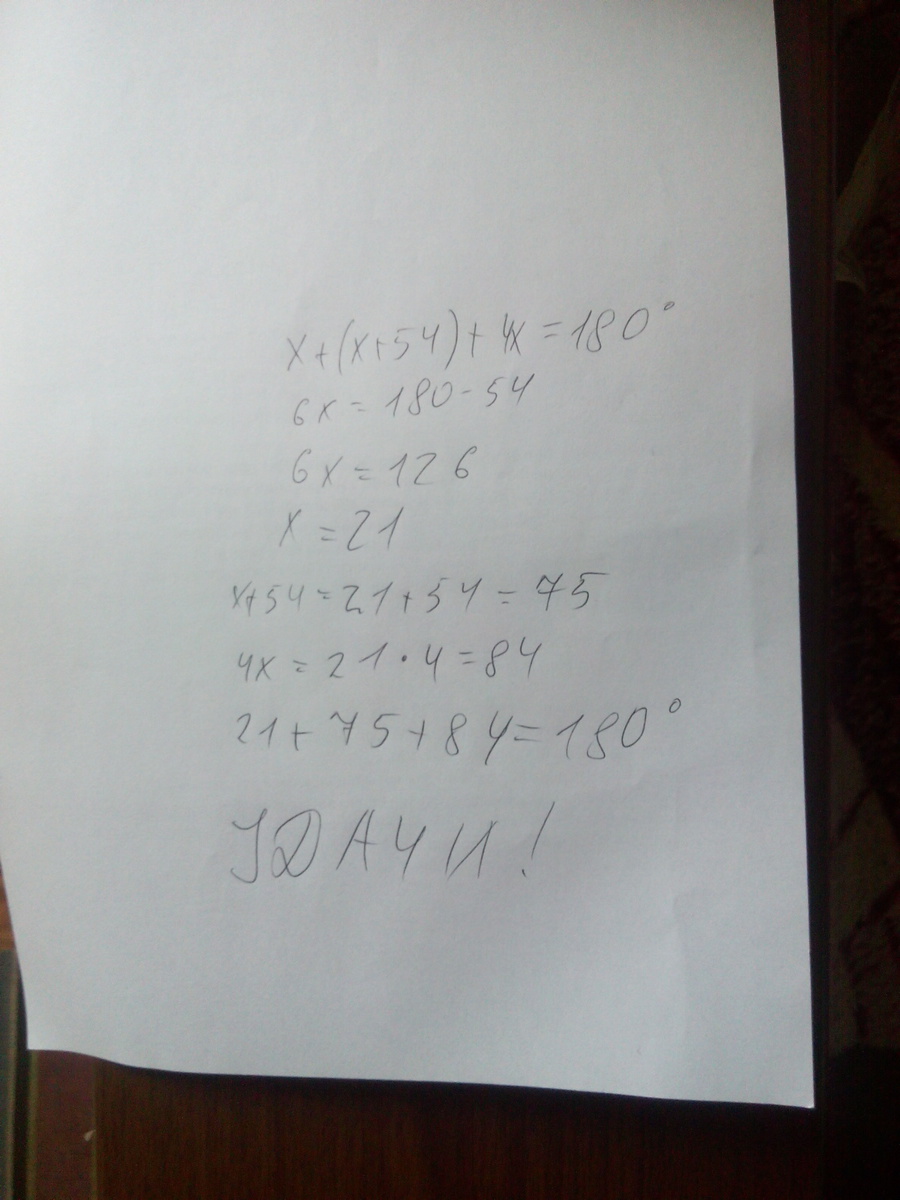 x+(x+54)+4x=180°
6x=180-54
6x=126
x=21
x+54=21+54=75
4x=21·4=84
21+75+84=180°
УДАЧИ!